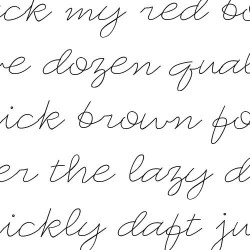 ck my red bo
ve dozen qual
ick brown fo
er the lazy d
ickly daft ju